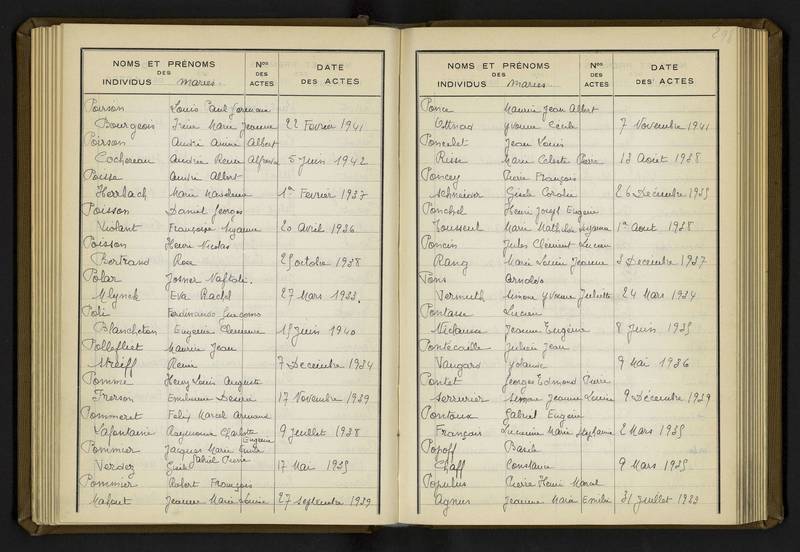 NOMS ET PRÉNOMS
DES
INDIVIDUS mariés
Nos
DES
ACTES
DATE
DES ACTES
Poirson Louis Paul Germain
Bourgeois Irène Marie Jeanne 22 Fevrier 1941
Poirson André Aimé Albert
Cochereau Andrée Renée 5 Juin 1942
Poisse André Albert
Herrbach Marie Madeleine 1er Fevrier 1937
Poisson Daniel Georges
Violant Françoise Suzanne 20 Avril 1936
Poisson Henri Nicolas
Bertrand Rose 25 octobre 1938
Polar Naftali
Mlynek Eva Rachel 27 Mars 1933
Poli Ferdinando
Blancheton Eugénie Clemence 15 Juin 1940
Maurice Jean
Streiff Renée 7 Decembre 1934
Pomme Henry Louis Auguste
Frerson Emilienne 17 Novembre 1939
Pommeret Felix Marcel Armand
Lafontaine Raymonde Charlotte Eugénie 9 Juillet 1938
Pommier Jacques Marie
Gabriel Pierre
Verdez 17 Mai 1935
Pommier Robert François
Mahout Jeanne Marie Louise 27 Septembre 1939
NOMS ET PRÉNOMS
DES
INDIVIDUS mariés
Nos
DES
ACTES
DATE
DES ACTES
Ponce Maurice Jean Albert
Yvonne Cécile 7 Novembre 1941
Poncelet Jean Louis
Risse Marie Celeste Pierre 13 Août 1938
Poncey Pierre François
Schneider Gisèle Coralie 26 Decembre 1935
Ponchel Henri Joseph Eugène
Housseul Marie Mathilde Suzanne 1er Aout 1938
Poncin Jules Clément Lucien
Rang Marie Louise Jeanne 3 Decembre 1937
Pons Arnoldo
Vermuth Simone Yvonne Juliette 24 Mars 1934
Pontasse Lucien
Jeanne Eugénie 8 Juin 1935
Pontécaille Julien Jean
Vaugard Yolande 9 Mai 1936
Pontet Georges Edmond Pierre
Serrurier Simone Jeanne Lucie 9 Décembre 1939
Pontoux Gabriel Eugène
François Lucienne Marie Stéphanie 2 Mars 1935
Popoff Basile
Constance 9 Mars 1935
Populus Pierre Henri Marcel
Agnus Jeanne Marie Emilie 31 Juillet 1933